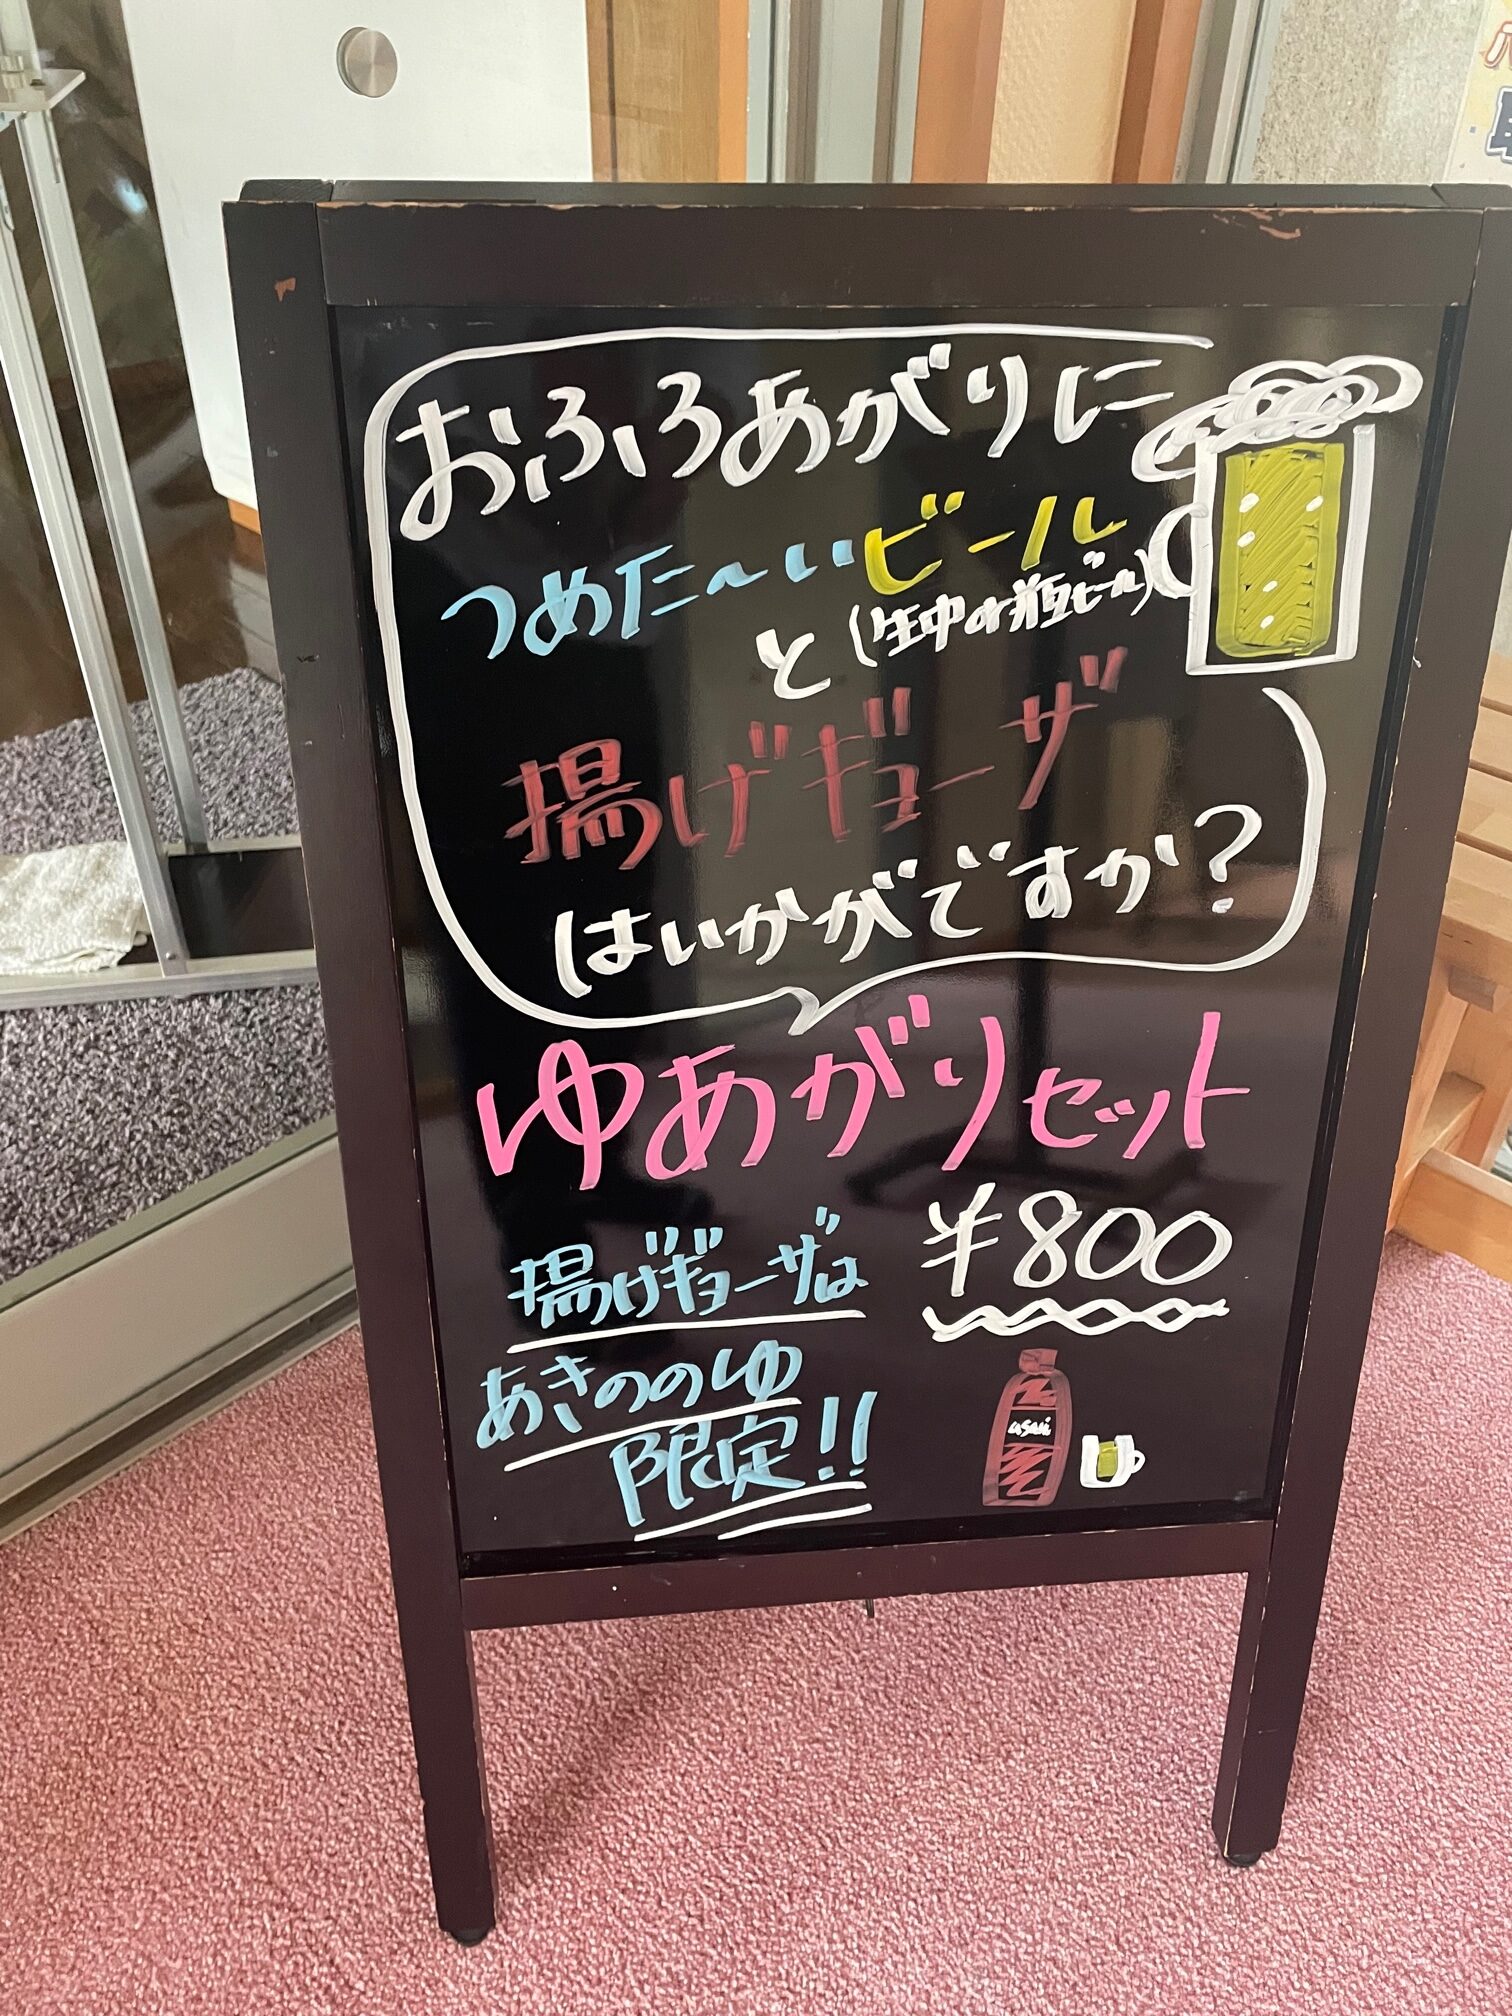 おふろあがりに
つめた〜いビール
と(生中or瓶ビール)
揚げギョーザ
はいかがですか?
ゆあがりセット
¥800
揚げギョーザは
あきののゆ
限定!!
asahi